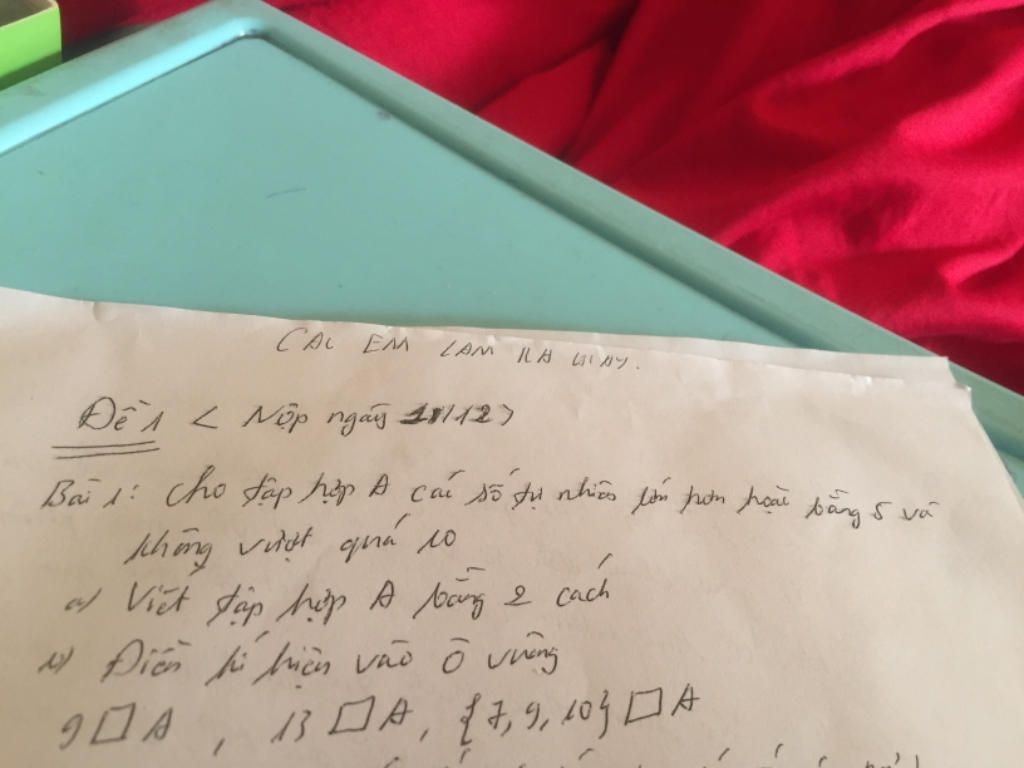 CÁC EM LÀM RA GIẤY.
Đề 1 < Nộp ngày 11/12>
Bài 1: Cho tập hợp A các số tự nhiên lớn hơn hoặc bằng 5 và
không vượt quá 10
a) Viết tập hợp A bằng 2 cách
b) Điền kí hiệu vào ô vuông
9 □ A , 13 □ A , {7, 9, 10} □ A